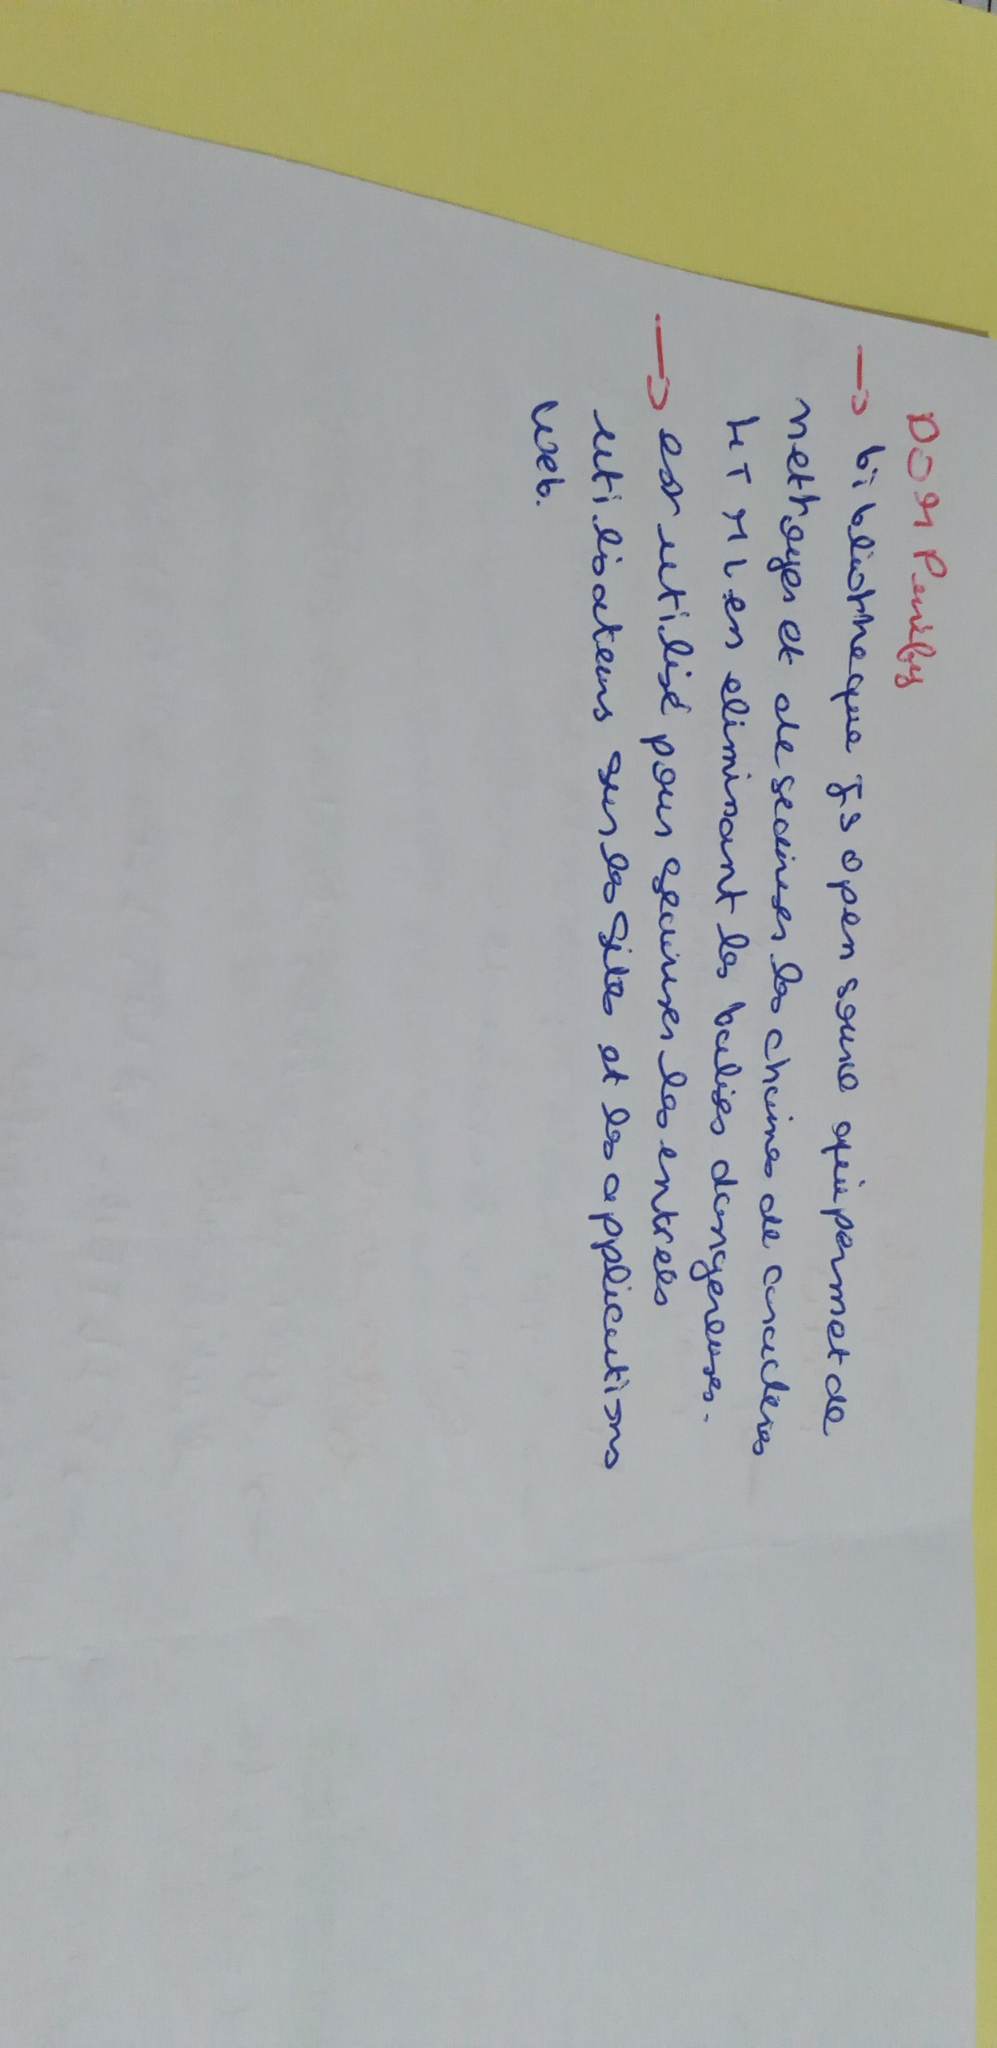 DOM Purify
→ bibliotheque JS open source qui permet de
nettoyer et de securiser les chaines de caracteres
HTML en eliminant les balises dangereuses.
→ est utilisé pour securiser les entrées
utilisateurs sur les sites et les applications
web.